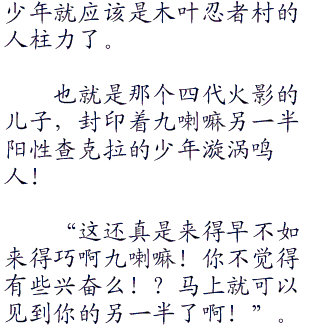 少年就应该是木叶忍者村的
人柱力了。
也就是那个四代火影的
儿子，封印着九喇嘛另一半
阳性查克拉的少年漩涡鸣
人！
“这还真是来得早不如
来得巧啊九喇嘛！你不觉得
有些兴奋么！？马上就可以
见到你的另一半了啊！”。